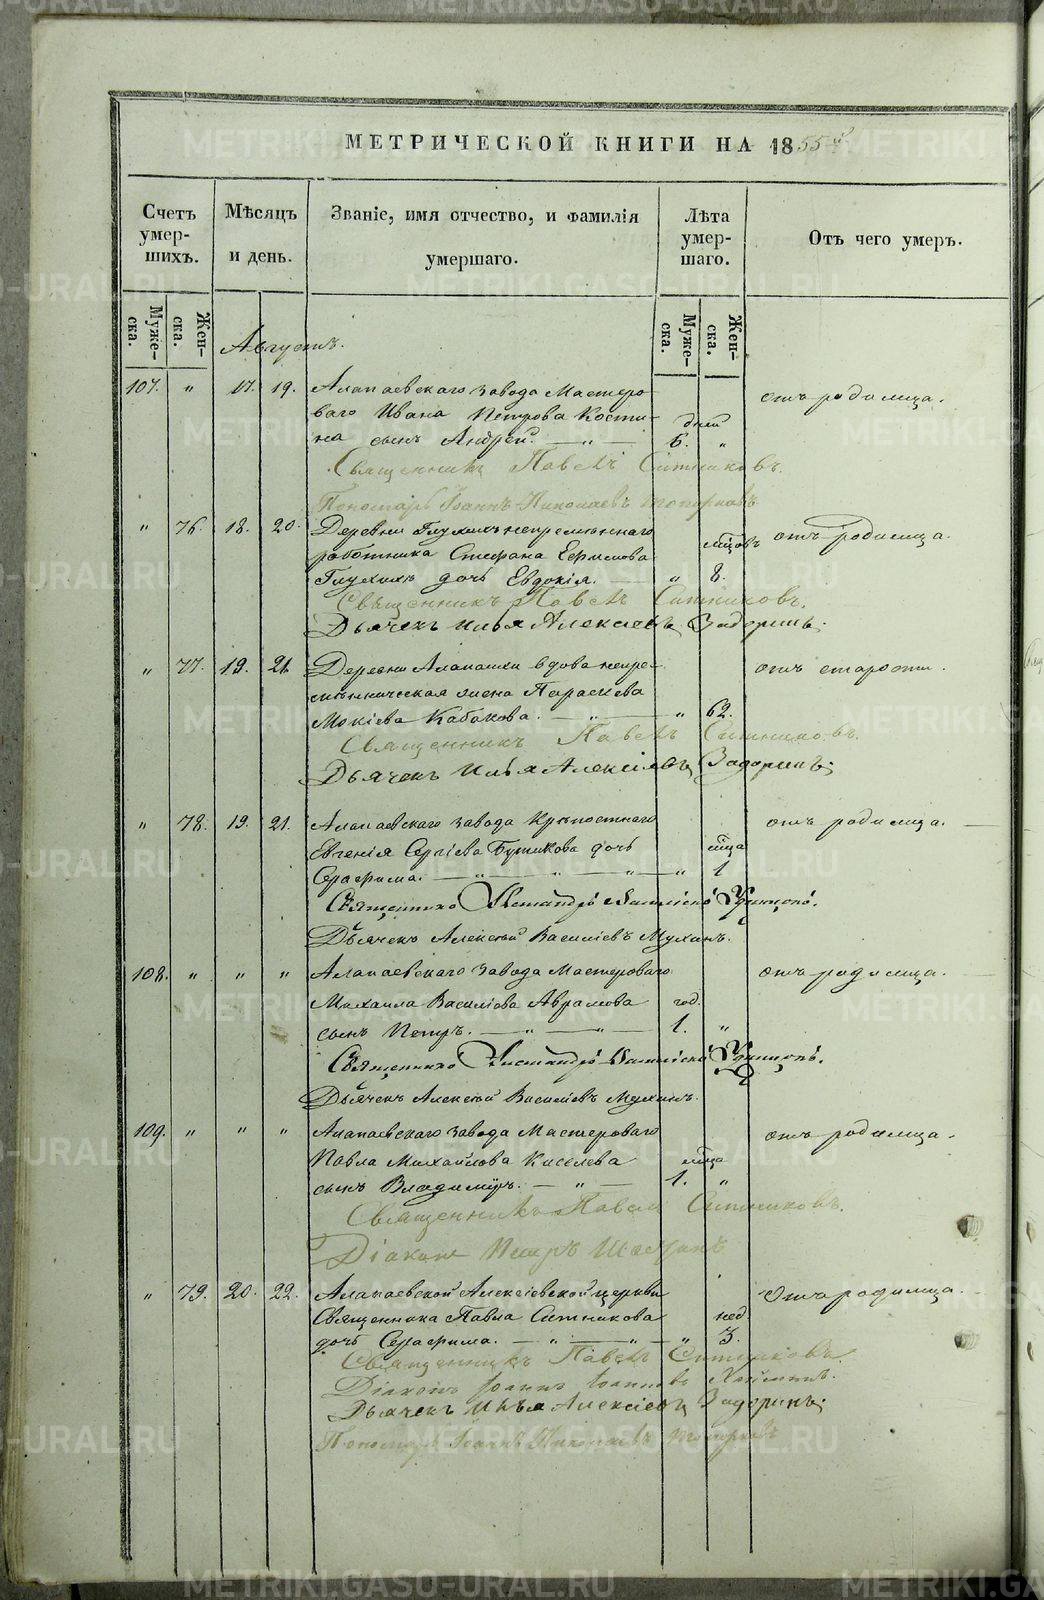 МЕТРИЧЕСКОЙ КНИГИ НА 1855й
Счетъ умершихъ.
Мѣсяцъ и день.
Званіе, имя отчество, и фамилія умершаго.
Лѣта умершаго.
Отъ чего умеръ.
Мужеска.
Женска.
Мужеска.
Женска.
Августъ.
107. " 17. 19. Алапаевскаго завода Мастеро- отъ родимца.
ваго Ивана Петрова Кости- дней
на сынъ Андрей. — " — 6. "
Священникъ Павелъ Ситниковъ.
Пономарь Іоаннъ Николаевъ Топорковъ
" 76. 18. 20. Деревни Глухихъ непремѣннаго отъ родимца.
работника Стефана Ефимова мцовъ
Глухихъ дочь Евдокія. — " 8.
Священникъ Павелъ Ситниковъ.
Дьячекъ Илья Алексіевъ Задоринъ.
" 77. 19. 21. Деревни Алапаихи вдова непре- отъ старости.
мѣнническая жена Параскева
Мокіева Кабакова. — " — " 62.
Священникъ Павелъ Ситниковъ.
Дьячекъ Илья Алексіевъ Задоринъ.
" 78. 19. 21. Алапаевскаго завода Крѣпостнаго отъ родимца.
Евгенія Сергіева Бушкова дочь мѣца
Серафима. — " — " — " — " 1
Священникъ Александръ Васильевъ Удинцовъ.
Дьячекъ Алексѣй Василіевъ Мухинъ.
108. " " " Алапаевскаго завода Мастероваго отъ родимца.
Михаила Василіева Аврамова год.
сынъ Петръ. — " — " — 1. "
Священникъ Александръ Васильевъ Удинцовъ.
Дьячекъ Алексѣй Василіевъ Мухинъ.
109. " " " Алапаевскаго завода Мастероваго отъ родимца.
Павла Михайлова Киселева мѣца
сынъ Владиміръ. — " — 1. "
Священникъ Павелъ Ситниковъ.
Діаконъ Петръ
" 79. 20. 22. Алапаевской Алексіевской церкви Отъ родимца.
Священника Павла Ситникова нед.
дочь Серафима. — " — " — " 3.
Священникъ Павелъ Ситниковъ.
Діаконъ Іоаннъ Іоанновъ
Дьячекъ Илья Алексіевъ Задоринъ.
Пономарь Іоаннъ Николаевъ Топорковъ
METRIKI.GASO-URAL.RU